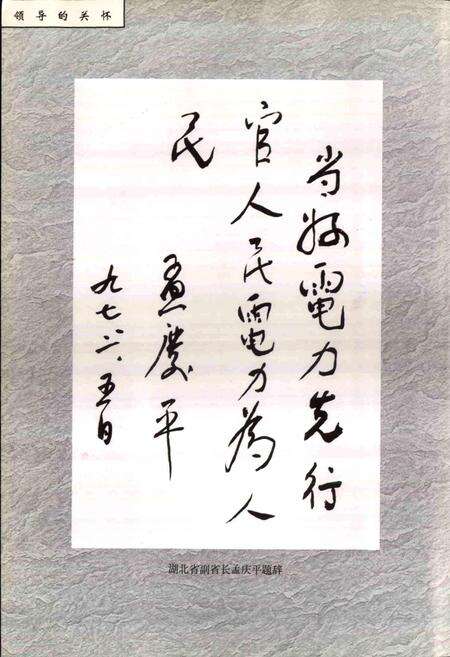 领导的关怀
当好電力先行
官人民電力為人
民
孟庆平
九七.六.五日
湖北省副省长孟庆平题辞